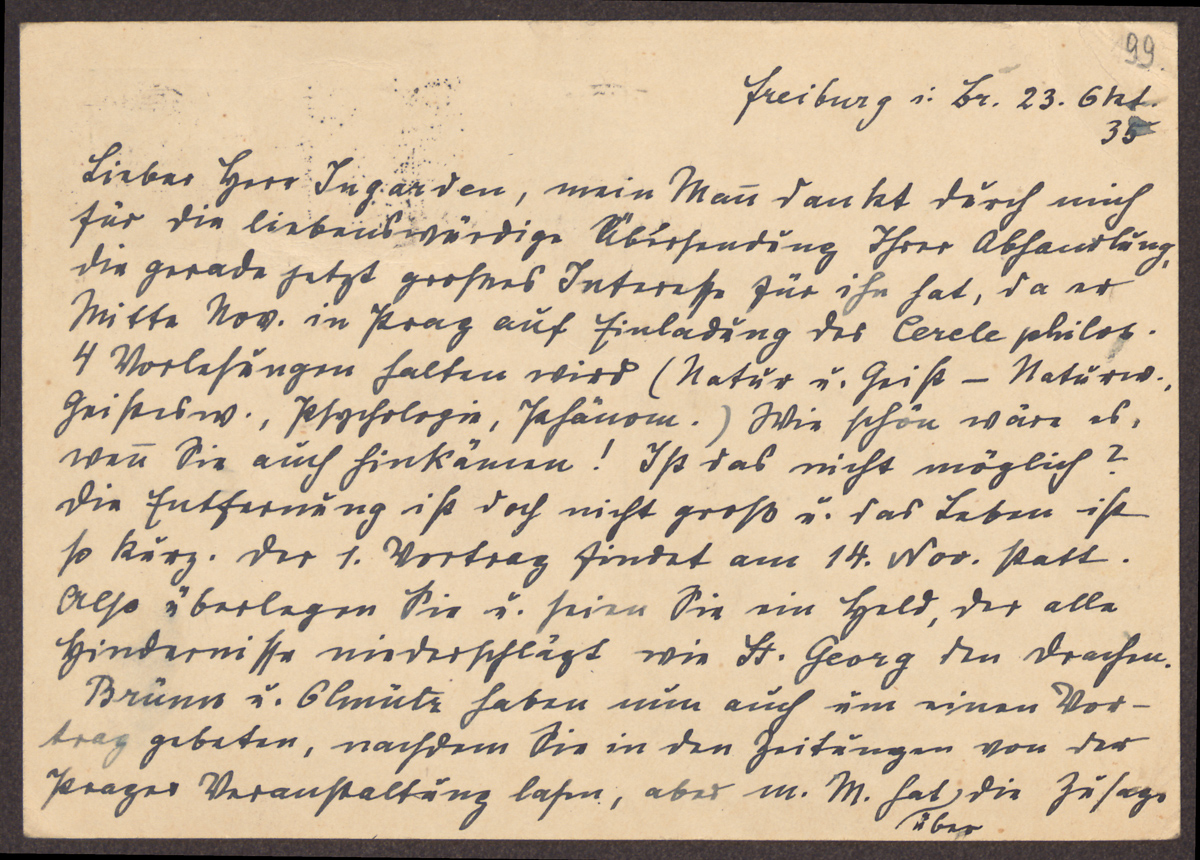 99
Freiburg i. Br. 23. Okt.
35
Lieber Herr Ingarden, mein Mañ dankt durch mich
für die liebenswürdige Übersendung Ihrer Abhandlung,
die gerade jetzt großes Interesse für ihn hat, da er
Mitte Nov. in Prag auf Einladung des Cercle philos.
4 Vorlesungen halten wird (Natur u. Geist – Naturw.,
Geistesw., Psychologie, Phänom.) Wie schön wäre es,
weñ Sie auch hinkämen! Ist das nicht möglich?
Die Entfernung ist doch nicht groß u. das Leben ist
so kurz. Der 1. Vortrag findet am 14. Nov. statt.
Also überlegen Sie u. seien Sie ein Held, der alle
Hindernisse niederschlägt wie St. Georg den Drachen.
Brünn u. Olmütz haben nun auch um einen Vor-
trag gebeten, nachdem Sie in den Zeitungen von der
Prager Veranstaltung lasen, aber m. M. hat die Zusage
über